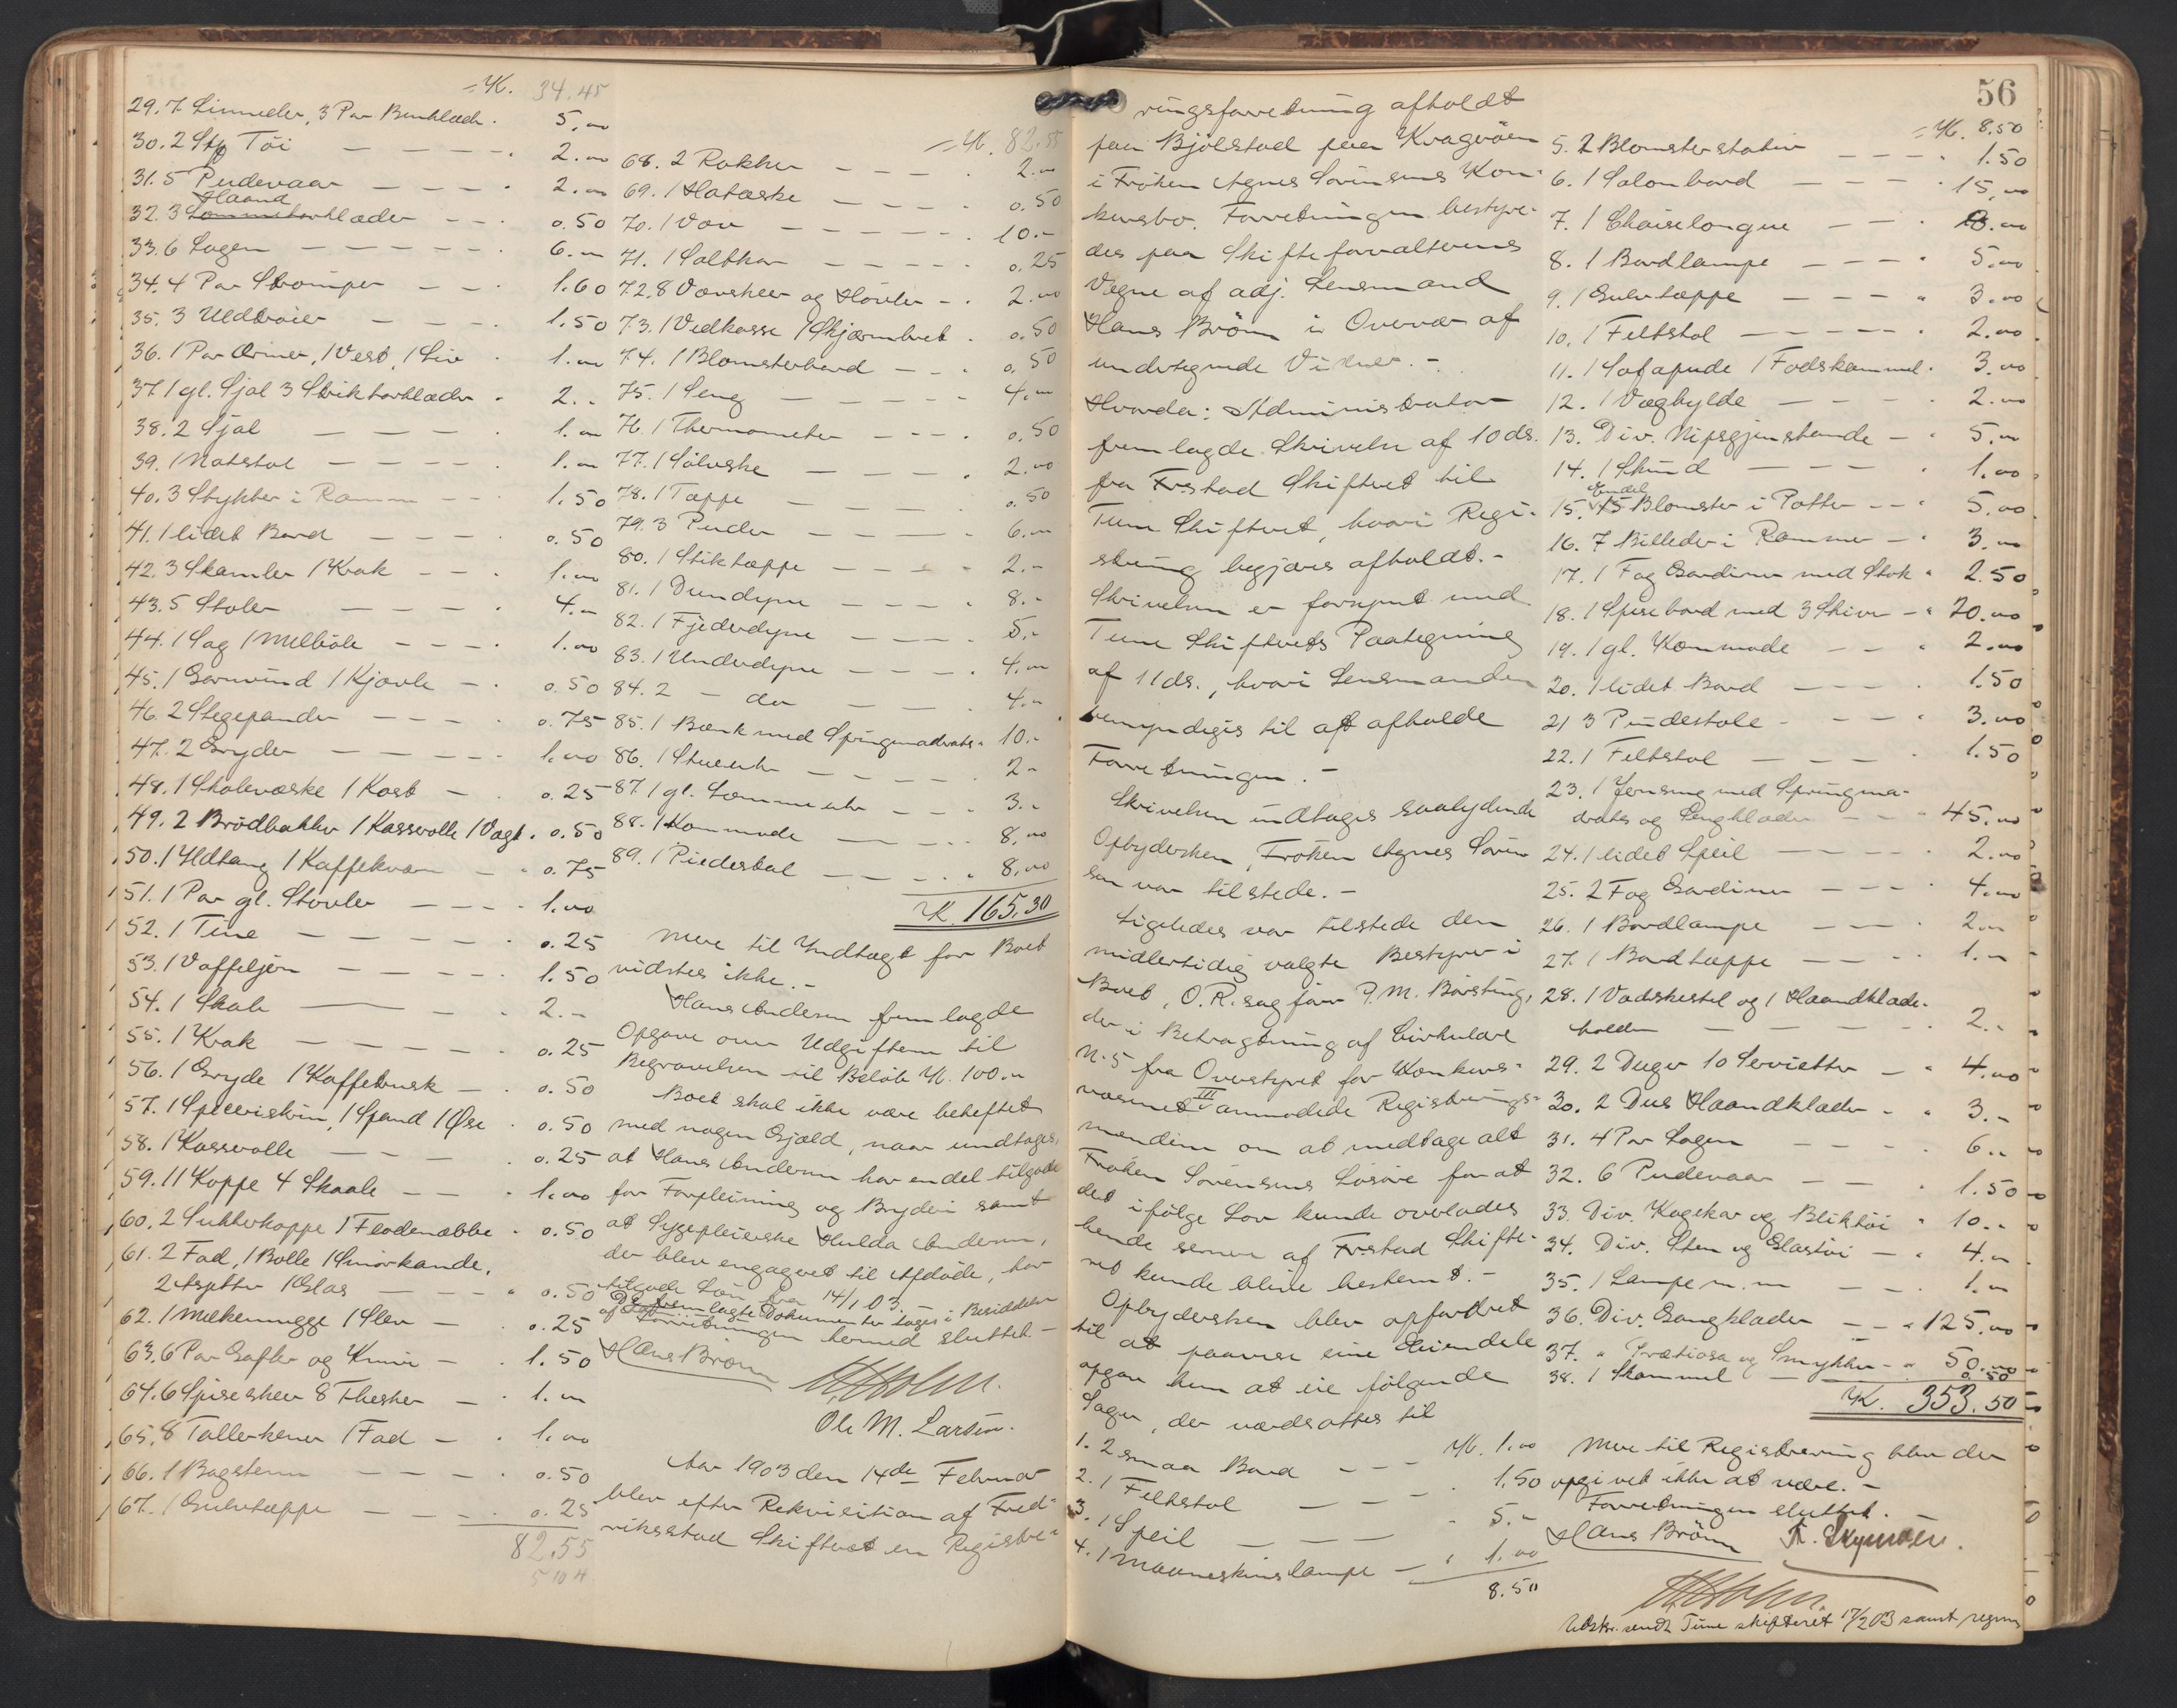 = K. 34.45
29. 7 Linneder, 3 Par Benklæder . 5,00
30. 2 Stk Töi — — — — . 2.00
31. 5 Pudevaar — — — . 2.00
Haand
32. 3 Lommetørklæder — — . 0.50
33. 6 Lagen — — — — — . 6.00
34. 4 Par Strömper — — . 1.60
35. 3 Uldtröier — — — . 1.50
36. 1 Par Ærmer, 1 Vest, 1 Liv . 1.00
37. 1 gl. Sjal 3 Strik tørklæder . 2. -
38. 2 Sjal — — — — . 1.00
39. 1 Natstol — — — — . 1.00
40. 3 Stykker i Ramme — — . 1.50
41. 1 lidet Bord — — — . 0.50
42. 3 Skamler 1 Krak — — . 1.00
43. 5 Stoler — — — — . 4.-
44. 1 Sag 1 Melböle — — — . 1.00
45. 1 Garnvind 1 Kjævle — . 0.50
46. 2 Stegepander — — — . 0.75
47. 2 Gryder — — — — . 1.00
48. 1 Skolevæske 1 Kost — . 0.25
49. 2 Brödbakker 1 Kasserolle 1 Vægt . 0.50
50. 1 Ildtang 1 Kaffekværn — . 0.75
51. 1 Par gl. Støvler — — — . 1.00
52. 1 Tine — — — — — . 0.25
53. 1 Vaffeljern — — — — . 1.50
54. 1 Skab — — — . 2.-
55. 1 Krak — — — — — . 0.25
56. 1 Gryde 1 Kaffebrusk — . 0.50
57. 1 Specerisrin, 1 Spand 1 Øse . 0.50
58. 1 Kasserolle — — — . 0.25
59. 11 Koppe 4 Skaale — — . 1.00
60. 2 Sukkerkoppe 1 Flødenæbbe . 0.50
61. 2 Fad, 1 Bolle 1 Smörkande,
2 Asjetter 1 Glas — — — " 0.50
62. 1 Melkemugge 1 Slev — . 0.25
63. 6 Par Gafler og Knive — . 1.50
64. 6 Spiseskeer 8 Theskeer — . 1.00
65. 8 Tallerkener 1 Fad — . 1.00
66. 1 Bagsteen — — — — . 0.50
67. 1 Gulvtæppe — — — — . 0.25
82.55
= K. 82.55
68. 2 Rokker — — — . 2.00
69. 1 Hatæske — — — — . 0.50
70. 1 Væv — — — — — . 10.-
71. 1 Saltkar — — — — . 0.25
72. 8 Vævskeer og Hövler — . 2.00
73. 1 Vedkasse 1 Skjærmbret . 0.50
74. 1 Blomsterbord — — . 0.50
75. 1 Seng — — — — — - 4.00
76. 1 Thermometer — — — . 0.50
77. 1 Sölvske — — — — . 2.00
78. 1 Tæppe — — — — . 0.50
79. 3 Puder — — — — - 6.00
80. 1 Stiktæppe — — — - 2.-
81. 1 Dundyne — — — — . 8.-
82. 1 Fjederdyne — — — . 5.-
83. 1 Underdyne — — — . 4.00
84. 2 — do — — . 4.-
85. 1 Bænk med Springmadrats . 10.-
86. 1 Stueuhr — — — — . 2-
87. 1 gl. Lommeuhr — — - 3.-
88. 1 Kommode — — — . 8,00
89. 1 Piedestal — — — . 8,00
K. 165,30
Mere til Indtægt for Boet
vidstes ikke. -
Hans Andersen fremlagde
Opgave over Udgifterne til
Begravelsen til Beløb K. 100.00
Boet skal ikke være beheftet
med nogen Gjæld, naar undtages
at Hans Andersen har en del tilgode
for Forpleining og Bryderi samt
at Sygepleierske Hulda Andersen,
der blev engageret til Afdöde, har
tilgode Lön fra 14/1 03. —
De fremlagte Dokumenter tages i Besiddelse
af Forretningen hermed sluttet. -
Hans Bröm
HHolm.
Ole M. Larsen.
Aar 1903 den 14de Februar
blev efter Rekvisition af Fred-
riksstad Skifteret en Registre-
56
ringsforretning afholdt
paa Bjölstad paa Kragerøen
i Fröken Agnes Sörensens Kon-
kursbo. Forretningen bestyre-
des paa Skifteforvalterens
Vegne af adj. Lensmand
Hans Bröm i Overvær af
undertegnede Vidner. -
Hvorda: Administrator
fremlagde Skrivelse af 10 ds.
fra Fr.stad Skifteret til
Tune Skifteret, hvori Regi-
strering begjæres afholdt. -
Skrivelsen er forsynet med
Tune Skifterets Paategning
af 11 ds., hvori Lensmanden
bemyndiges til at afholde
Forretningen. -
Skrivelsen indtages saalydende
Opbydersken, Fröken Agnes Sören-
sen var tilstede. -
Ligeledes var tilstede den
midlertidig valgte Bestyrer i
Boet, O.R.sagförer P.M. Börsting,
der i Betragtning af Cirkulære
N. 5 fra Overstyret for Konkurs-
væsenet III anmodede Registrerings-
mændene om at medtage alt
Fröken Sörensens Løsøre for at
det ifølge Lov kunde overlades
hende senere af Fr.stad Skifte-
ret kunde blive bestemt. -
Opbydersken blev opfordret
til at paavise sine Eiendele
opgav hun at eie følgende
Sager, der værdsattes til
1. 2 smaa Bord — — — K. 1.00
2. 1 Feltstol — — — . 1.50
3. 1 Speil — — — " 5.-
4. 1 Maaneskinslampe — " 1.00
8.50
= K. 8.50
5. 2 Blomsterstativ — — — . 1.50
6. 1 Salonbord — — — . 15,00
7. 1 Chaiselongue — — . 8.00
8. 1 Bordlampe — — — . 5.00
9. 1 Gulvtæppe — — — " 3.00
10. 1 Feltstol — — — — . 2.00
11. 1 Sofapude 1 Fodskammel . 3.00
12. 1 Væghylde — — — . 2.00
13. Div. Nipsgjenstande — . 5.00
14. 1 Skind — — — . 1.00
Endel
15. 15 Blomster i Potter — — . 5.00
16. 7 Billeder i Rammer — . 3.00
17. 1 Fag Gardiner med Stok " 2.50
18. 1 Spisebord med 3 Skiver — " 20.00
19. 1 gl. Kommode — — " 2.00
20. 1 lidet Bord — — — . 1.50
21 3 Pindestole - — — " 3.00
22. 1 Feltstol — — — . 1.50
23. 1 Jernseng med Springma-
drats og Sengklæder — — " 45.00
24. 1 lidet Speil — — — . 2.00
25. 2 Fag Gardiner — — — . 4.00
26. 1 Bordlampe — — . 2.00
27. 1 Bordtæppe — — . 1.00
28. 1 Vadskestel og 1 Haandklæde-
holder — — — — . 2.-
29. 2 Duger 10 Servietter — " 4.00
30. 2 Dus Haandklæder - " 3.-
31. 4 Par Lagen — — — . 6.-
32. 6 Pudevaar — — . 1.50
33. Div. Kogekar og Bliktöi " 10.-
34. Div. Sten og Glastöi — " 4.00
35. 1 Lampe m.m — — . 1.00
36. Div. Gangklæder — — " 125.00
37. " Prætiosa og Smykker — " 50.00
38. 1 Skammel — 0.50
K. 353.50
Mere til Registrering blev der
opgivet ikke at være. -
Forretningen sluttet.
Hans Bröm
HHolm.
Udskr. sendt Tune skifteret 17/2 03 samt regning